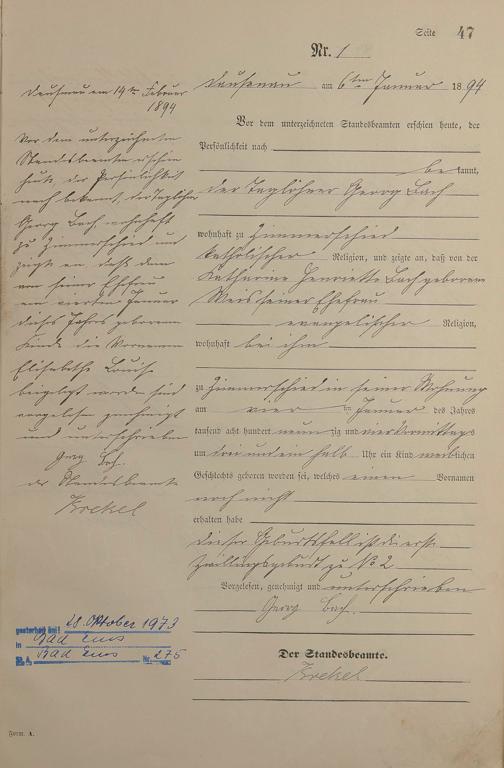 Seite 47
Nr. 1
Dausenau am 6ten Januar 1894
Vor dem unterzeichneten Standesbeamten erschien heute, der
Persönlichkeit nach
bekannt,
der Taglöhner Georg Bach
wohnhaft zu Zimmerschied
katholischer Religion, und zeigte an, daß von der
Katharine Henriette Bach geborenen
Weis seiner Ehefrau
evangelischer Religion,
wohnhaft bei ihm
zu Zimmerschied in seiner Wohnung
am vier ten Januar des Jahres
tausend acht hundert neun zig und vier Vormittags
um drei und ein halb Uhr ein Kind weiblichen
Geschlechts geboren worden sei, welches einen Vornamen
noch nicht
erhalten habe
Dieser Geburtsfall ist die erste
Zwillingsgeburt zu No 2
Vorgelesen, genehmigt und unterschrieben
Georg Bach.
Der Standesbeamte.
Krekel
Dausenau am 14ten Februar
1894
Vor dem unterzeichneten
Standesbeamten erschien
heute, der Persönlichkeit
nach bekannt, der Taglöhner
Georg Bach, wohnhaft
zu Zimmerschied und
zeigte an, daß dem
von seiner Ehefrau
am vierten Januar
dieses Jahres geborenen
Kinde die Vornamen
Elisabethe Louise
beigelegt worden sind
vorgelesen genehmigt
und unterschrieben
Georg Bach.
der Standesbeamte
Krekel
gestorben am 28. Oktober 1973
in Bad Ems
St.A. Bad Ems Nr. 275
Form. A.